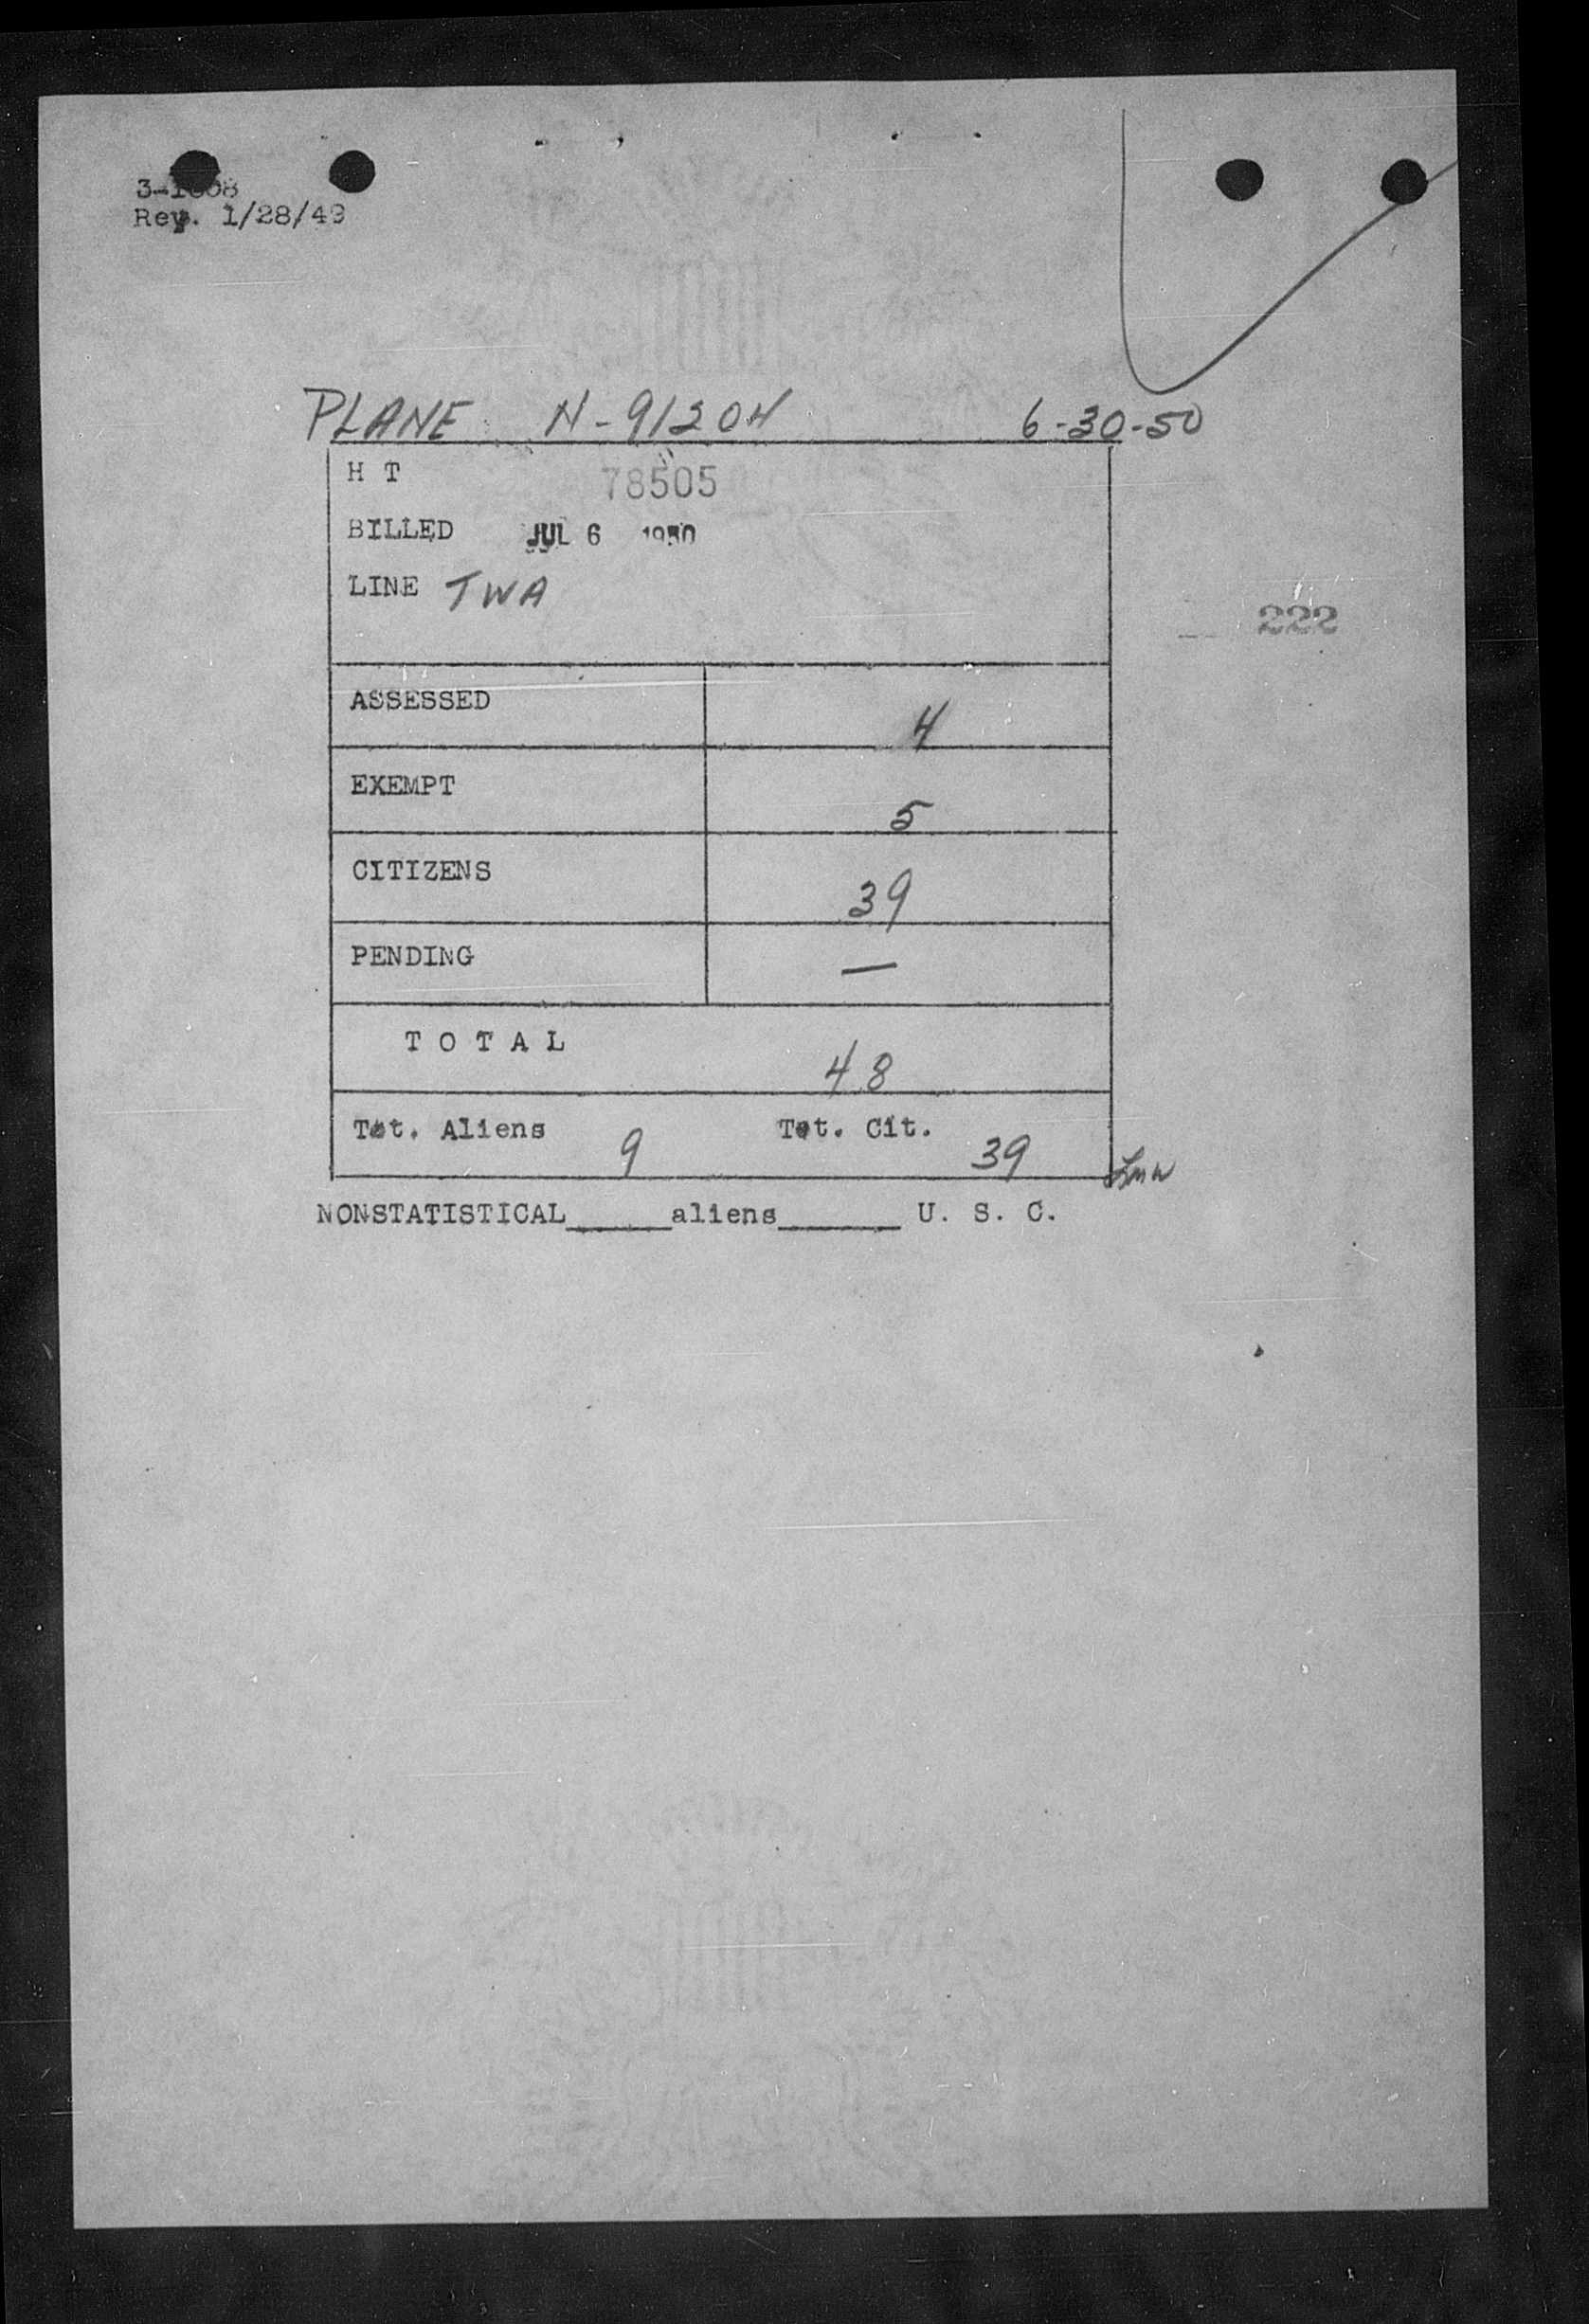 Rev. 1/28/49
PLANE N-91204 6-30-50
H T 78505
BILLED JUL 6 1950
LINE TWA
222
ASSESSED 4
EXEMPT 5
CITIZENS 39
PENDING —
T O T A L 48
Tot. Aliens 9 Tot. Cit. 39
NONSTATISTICAL_____aliens______ U. S. C.